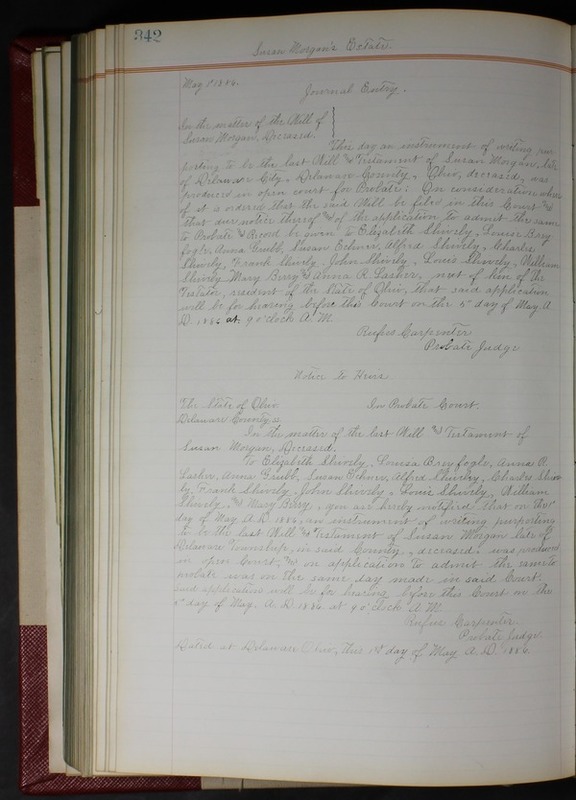 342
Susan Morgan's Estate.
May 1st 1886.
Journal Entry.
In the matter of the Will of
Susan Morgan, Deceased.
This day an instrument of writing pur-
porting to be the last Will and Testament of Susan Morgan, late
of Delaware City, Delaware County, Ohio, deceased, was
produced in open court for Probate: On consideration where-
of it is ordered that the said Will be filed in this Court and
that due notice thereof and of the application to admit the same
to Probate & Record be given to Elizabeth Shively, Louisa Brey
fogle, Anna Grubb, Susan Echner, Alfred Shively, Charles
Shively, Frank Shively, John Shively, Louis Shively, William
Shively Mary Berry and Anna R. Lasher, next of kin of the
Testator, resident of the State of Ohio, that said application
will be for hearing before this Court on the 5th day of May, A.
D. 1886 at 9 o'clock A. M.
Rufus Carpenter
Probate Judge
Notice to Heirs
The State of Ohio. In Probate Court.
Delaware County, ss.
In the matter of the last Will and Testament of
Susan Morgan, Deceased.
To Elizabeth Shively, Louisa Breyfogle, Anna R.
Lasher, Anna Grubb, Susan Echner, Alfred Shively, Charles Shive
ly, Frank Shively, John Shively, Louis Shively, William
Shively, and Mary Berry, you are hereby notified that on the 1st
day of May A. D. 1886, an instrument of writing purporting
to be the last Will and Testament of Susan Morgan late of
Delaware Township, in said County, deceased, was produced
in open Court, and on application to admit the same to
probate was on the same day made in said Court.
Said application will be for hearing before this Court on the
5th day of May, A. D. 1886 at 9 o'clock A. M.
Rufus Carpenter.
Probate Judge.
Dated at Delaware Ohio, this 1st day of May A. D. 1886.